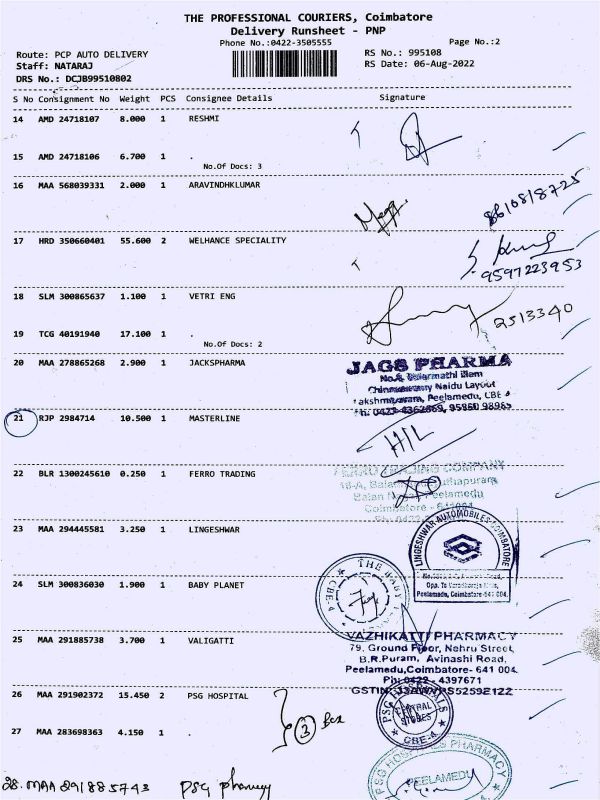 THE PROFESSIONAL COURIERS, Coimbatore
Delivery Runsheet - PNP
Phone No.:0422-3505555
Page No.:2
Route: PCP AUTO DELIVERY
RS No.: 995108
Staff: NATARAJ
RS Date: 06-Aug-2022
DRS No.: DCJB99510802
S No Consignment No Weight PCS Consignee Details Signature
14 AMD 24718107 8.000 1 RESHMI
15 AMD 24718106 6.700 1 .
No.Of Docs: 3
16 MAA 568039331 2.000 1 ARAVINDHKLUMAR
8610818725
17 HRD 350660401 55.600 2 WELHANCE SPECIALITY
9597223953
18 SLM 300865637 1.100 1 VETRI ENG
2513340
19 TCG 40191940 17.100 1 .
No.Of Docs: 2
20 MAA 278865268 2.900 1 JACKSPHARMA
JAGS PHARMA
Naidu Layout
Peelamedu, CBE
21 RJP 2984714 10.500 1 MASTERLINE
H/L
22 BLR 1300245610 0.250 1 FERRO TRADING
FERRO TRADING COMPANY
Peelamedu
Coimbatore
23 MAA 294445581 3.250 1 LINGESHWAR
LINGESHWAR AUTOMOBILES COIMBATORE
Peelamedu, Coimbatore-641 004.
24 SLM 300836030 1.900 1 BABY PLANET
THE BABY
CBE-4
25 MAA 291885738 3.700 1 VALIGATTI
VAZHIKATTI PHARMACY
79, Ground Floor, Nehru Street,
B.R.Puram, Avinashi Road,
Peelamedu,Coimbatore- 641 004.
Ph: 0422 - 4397671
26 MAA 291902372 15.450 2 PSG HOSPITAL
PSG HOSPITALS
CENTRAL STORES
CBE-4
3 box
27 MAA 283698363 4.150 1 .
PSG HOSPITALS PHARMACY
PEELAMEDU
28. MAA 291885743 PSG pharmacy